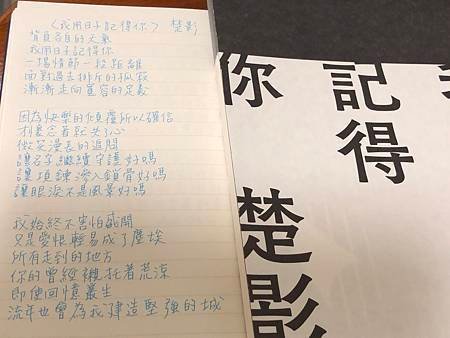 《我用日子記得你》 楚影
背負各自的天氣
我用日子記得你
一場情節一段距離
面對過去排斥的孤寂
漸漸走向寬容的定義
因為快樂的傾覆所以確信
念着就失了心
微笑漫長的追問
讓名字繼續守護好嗎
讓項鍊滲入鎖骨好嗎
讓眼淚不是風景好嗎
我始終不害怕盛開
只是愛恨輕易成了塵埃
所有走到的地方
你的曾經襯托着荒涼
即使回憶叢生
流年也會為我建造堅強的城
記得
你
楚影